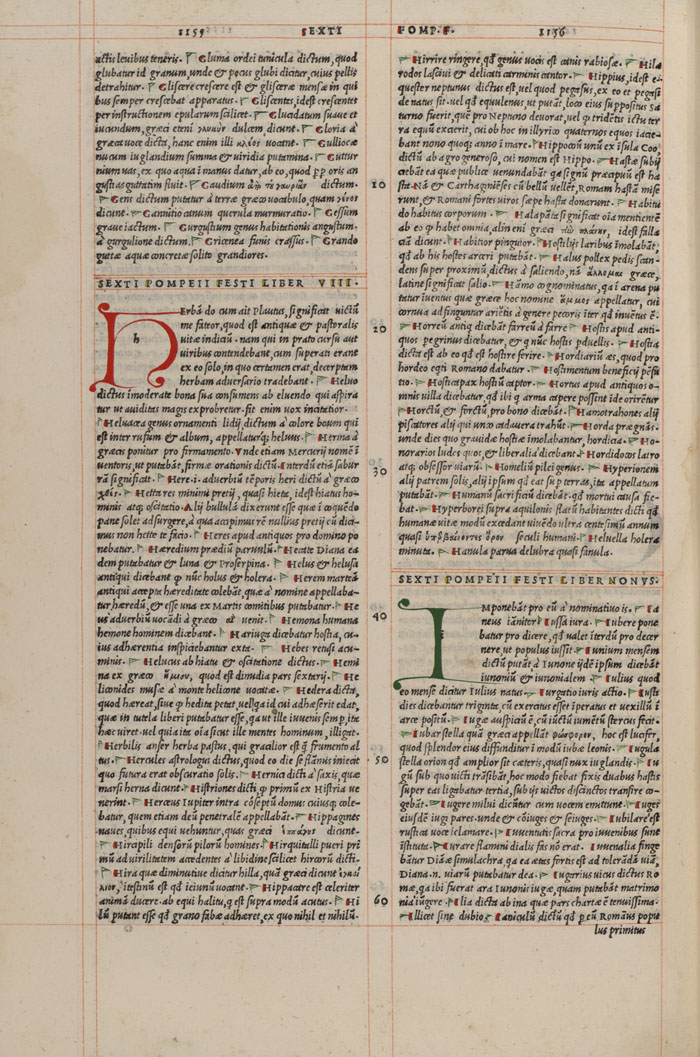 1159 SEXTI POMP. F. 1156
actis leuibus teneris. Gluma ordei tunicula dictum, quod
glubatur id granum, unde & pecus glubi dicitur, cuius pellis
detrahitur. Gliscere crescere est & gliscerae mensae in qui
bus semper crescebat apparatus. Gliscentes, idest crescentes
per instructionem epularum scilicet. Glucidatum suaue et
iucundum, graeci etenim γλυκὺν dulcem, dicunt. Gloria à
graeca uoce dicta, hanc enim illi κλέος uocant. Gulliocae
nucum iuglandium summa & uiridia putamina. Guttur
nium uas, ex quo aqua ĩ manus datur, ab eo, quod pp oris an
gustias guttatim fluit. Gaudium dictum.
Gens dictum putatur à terrae graeco uocabulo, quam
dicunt. Gannitio canum querula murmuratio. Gessum
graue iaculum. Gurgustium genus habitationis angustum.
à gurgulione dictum. Gricenea funis crassus. Grando
guttae aquae concretae solito grandiores.
SEXTI POMPEII FESTI LIBER VIII.
HErbã do cum ait Plautus, significat uictũ
me fateor, quod est antiquae & pastoralis
uitae indiciũ. nam qui in prato cursu aut
uiribus contendebant, cum superati erant
ex eo solo, in quo certamen erat, decerptam
herbam aduersario tradebant. Heluo
dictus ĩmoderate bona sua consumens ab eluendo cui aspira
tur ut auiditas magis exprobretur. fit enim uox incitatior.
Heluacea genus ornamenti lidij, dictum à colore boum qui
est inter rufum & album, appellaturq; heluus. Herina à
graecis ponitur pro firmamento. Vnde etiam Mercurij nomẽ ĩ
uentoris, ut putabãt, firmae orationis dictũ. Interdũ etiã sabur
rã significat. Here.i. aduerbiũ tẽporis heri dictũ à graeco
χθές. Hetta res minimi pretij, quasi hieta, idest hiatus ho-
minis atq; oscitatio. Alij bullulã dixerunt esse quae ĩ coquẽdo
pane solet adsurgere, à qua accipimus rẽ nullius pretij cũ dici-
mus non hettae te facio. Heres apud antiquos pro domino po
nebatur. Haeredium praediũ paruulũ. Hecate Diana ea
dem putabatur & luna & Proserpina. Helus & helusa
antiqui dicebant ꝙ nũc holus & holera. Herem marteã
antiqui accepta haereditate colebãt, quae à nomine appellaba-
tur haeredũ, & esse una ex Martis comitibus putabatur. He
us aduerbiũ uocãdi à graeco venit. Hemona humana
& hemone hominem dicebant. Hariuga dicebatur hostia, cu-
ius adhaerentia inspiciebantur exta. Hebes retusi acu-
minis. Helucus ab hiatu & oscitatione dictus. Hemi
na ex graeco ἥμισυ, quod est dimidia pars sexturij. He
liconides musae à monte helicone uocatae. Hedera dicta,
quod haereat, siue ꝙ hedita petat, uel qa id cui adhaeserit edat,
quae in tutela liberi putabatur esse, qa ut ille iuuenis semp, ita
haec uiret. uel quia ita oĩa sicut ille mentes hominum, illigat.
Herbilis anser herba pastus, qui gracilior est ꝗ̃ frumento al
tus. Hercules astrologus dictus, quod eo die se flãmis iniecit
quo futura erat obscuratio solis. Hernici dicti à saxis, quae
marsi herna dicunt. Histriones dicti, ꝙ primũ ex Histria ue
nerint. Herceus Iupiter intra cõseptũ domus cuiusq; cole-
batur, quem etiam deũ penetralẽ appellabant. Hippagines
naues, quibus equi uehuntur, quas graeci dicunt.
Hirapili densorũ pilorũ homines. Hirquitalli pueri pri
mũ ad uirilitatem accedentes à libidine scilicet hircorũ dicti.
Hira quae diminutiue dicitur hilla, quã graeci dicunt
ĩtestinũ est qd ieiunũ uocant. Hippacare est celeriter
animã ducere. ab equi halitu, q est supra modũ acutus. Hi
lũ putant esse qd grano fabae adhaeret, ex quo nihil et nihilũ.
Hirrire ringere, qd genus uocis est canis rabiosae. Hila
rodos lasciui & delicati carminis cantor. Hippius, idest e-
quester neptunus dictus est, uel quod pegasus, ex eo et pegasi
de natus sit. uel qd equuleus, ut putãt, loco eius suppositus Sa
turno fuerit, quẽ pro Neptuno deuorat, uel ꝙ tridẽtis ictu ter
ra equũ excierit, cui ob hoc in illyrico quaternos equos iacie-
bant nono quoq; anno ĩ mare. Hippocoũ unũ ex ĩsula Coo
dictũ ab agro generoso, cui nomen est Hippo. Hastae subij
ciebãt ea quae publice uenundabãt qa signũ praecipuũ est ha
sta. Nã & Carthaginiẽses cũ bellũ uellẽt, Romam hastã mise
runt, & Romani fortes uiros saepe hasta donarunt. Habitu
do habitus corporum. Halapãta significat oĩa mentientẽ
ab eo ꝙ habet omnia, alin eni graeci idest fallã
ciã dicunt. Habitior pinguior. Hostilijs laribus ĩmolabãt,
qd ab his hostes arceri putabãt. Halus pollex pedis scan-
dens super proximũ, dictus à saliendo, nã ἅλλομαι graece,
latine significat salio. Hãmo cognominatus, qa ĩ arena pu
tatur iuentus quae graece hoc nomine ἄμμος appellatur, cui
cornua adfinguntur arietis à genere pecoris ĩter qd inuẽtus ẽ.
Horreũ antiq dicebãt farreũ à farre. Hostis apud anti-
quos pegrinus dicebatur, & q nũc hostis pduellis. Hostia
dicta est ab eo qd est hostire ferire. Hordiariũ aes, quod pro
hordeo eqti Romano dabatur. Hostimentum beneficij pẽsa
tio. Hosticapax hostiũ captor. Hortus apud antiquos o-
mnis uilla dicebatur qd ibi q arma capere possint ide orirẽtur
Horctũ & forctũ, pro bono dicebãt. Hamotrahones alij
piscatores alij qui unco cadauera trahũt. Horda praegnãs.
unde dies quo grauidae hostiae ĩmolabantur, hordica. Ho-
norarios ludos quos, & liberalia dicebant. Hordidocos latro
atq; obsessor uiarũ. Homeliũ pilei genus. Hyperionem
alij patrem solis, alij ipsum qd eat sup terras, ita appellatum
putabãt. Humanũ sacrificiũ dicebãt. qd mortui causa fie-
bat. Hyperborei supra aquilonis flatũ habitantes dicti qd
humanae uitae modũ excedant uiuẽdo ultra centesimũ annum
quasi ὑπερβαίνοντες ὅρον seculi humani. Heluella holera
minuta. Hanula parua delubra quasi fanula.
SEXTI POMPEII FESTI LIBER NONVS.
IMponebãt pro eũ à nominatiuo is. Ia
neus ianitor. Iussa iura. Iubere pone
batur pro dicere, qd ualet ĩterdũ pro decer
nere, ut populus iussit. Iunium mensem
dictũ putãt à Iunone ijdẽ ipsum dicebãt
iunoniũ & iunonialem. Iulius quod
eo mense dicitur Iulius natus. Iurgatio iuris actio. Iusti
dies dicebantur triginta, cũ exercitus esset ĩperatus et uexillũ ĩ
arce positũ. Iugae auspiciũ ẽ, cũ iuctũ iumẽtũ stercus fecit.
Iubar stella quã graeci appellãt φωσφόρον, hoc est lucifer,
quod splendor eius diffunditur ĩ modũ iubae leonis. Iugula
stella orion qd amplior sit caeteris, quasi nux iuglandis. Iu
gũ sub quo uicti trãsibãt, hoc modo fiebat fixis duabus hastis
super eas ligabatur tertia, sub ijs uictos discinctos transire co-
gebãt. Iugere milui dicũtur cum uocem emittunt. Iuges
eiusdẽ iugi pares. unde & cõiuges & seiuges. Iubilare est
rustica uoce iclamare. Iuuentutis sacra pro iuuenibus sunt
ĩstituta. Iurare flamini dialis fas nõ erat. Iuuenalia finge
batur Dianae simulachra, qa ea aetas fortis est ad tolerãdã uiã,
Diana. n. uiarũ putabatur dea. Iugarius uicus dictus Ro
mae, qa ibi fuerat ara Iunonis iugae, quam putabãt matrimo
nia iugere. Ilia dicta ab ina quae pars chartae ẽ tenuissima.
Ilicet sine dubio. Ianiculũ dictũ qd p eũ Romãus popu
lus primitus
10
20
30
40
50
60